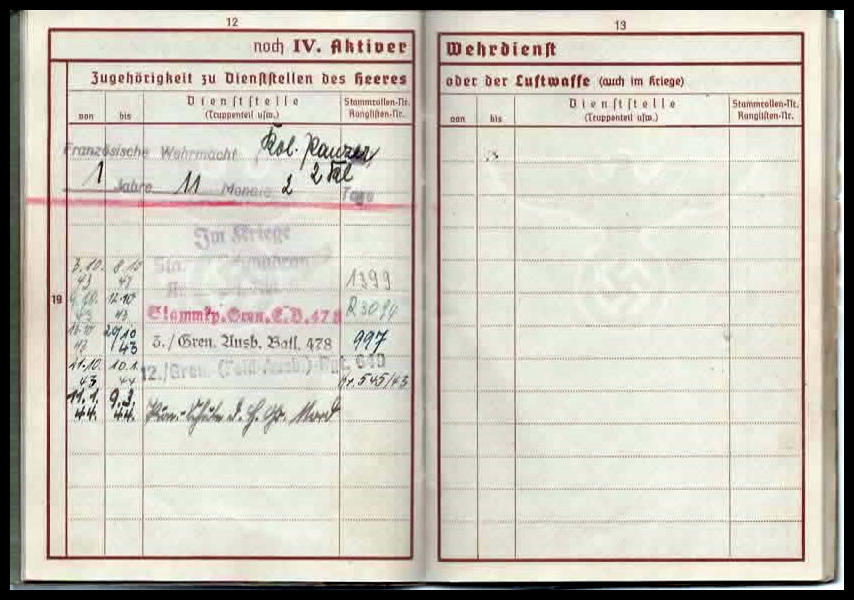 12
noch IV. Aktiver
Zugehörigkeit zu Dienststellen des Heeres
von bis Dienststelle (Truppenteil usw.) Stammrollen-Nr. Ranglisten-Nr.
Französische Wehrmacht Kol. Panzer
1 Jahre 11 Monate 2 Tage
Im Kriege
3.10. 43 8.10 43 1399
12.10 43 Stammkp. Gren. E. B. 478
29/10 43 3./Gren. Ausb. Batl. 478 997
19
43 10.1. 44 12./Gren. (Feld-Ausb.)-Rgt. 640 Nr. 545/43
11.1. 44. 9.3. 44. d. H. Gr. Nord
13
Wehrdienst
oder der Luftwaffe (auch im Kriege)
von bis Dienststelle (Truppenteil usw.) Stammrollen-Nr. Ranglisten-Nr.